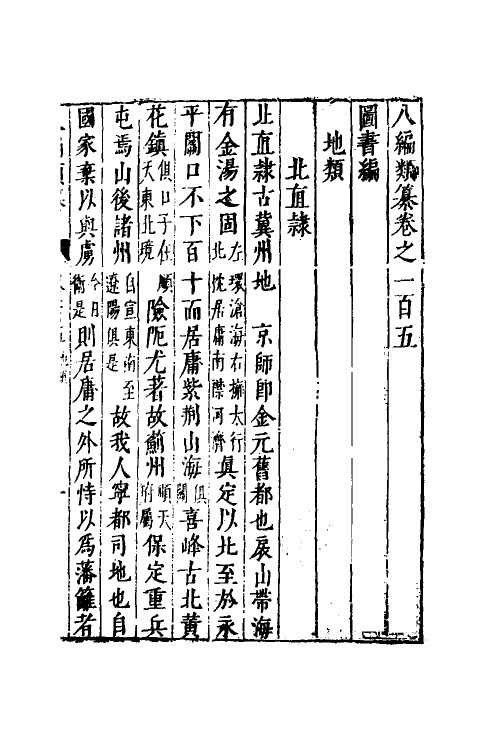 八編類纂卷之一百五
圖書編
地類
北直隸
北直隸古冀州地　京師即金元舊都也扆山帶海
有金湯之固左環滄海右擁太行北枕居庸南襟河濟真定以北至於永
平關口不下百十而居庸紫荆山海俱關喜峰古北黃
花鎮俱口子在順天東北境險阨尤著故薊州順天府屬保定重兵
屯焉山後諸州自宣東南至遼陽俱是故我人寧都司地也自
國家棄以與虜今日衛是則居庸之外所恃以爲藩籬者